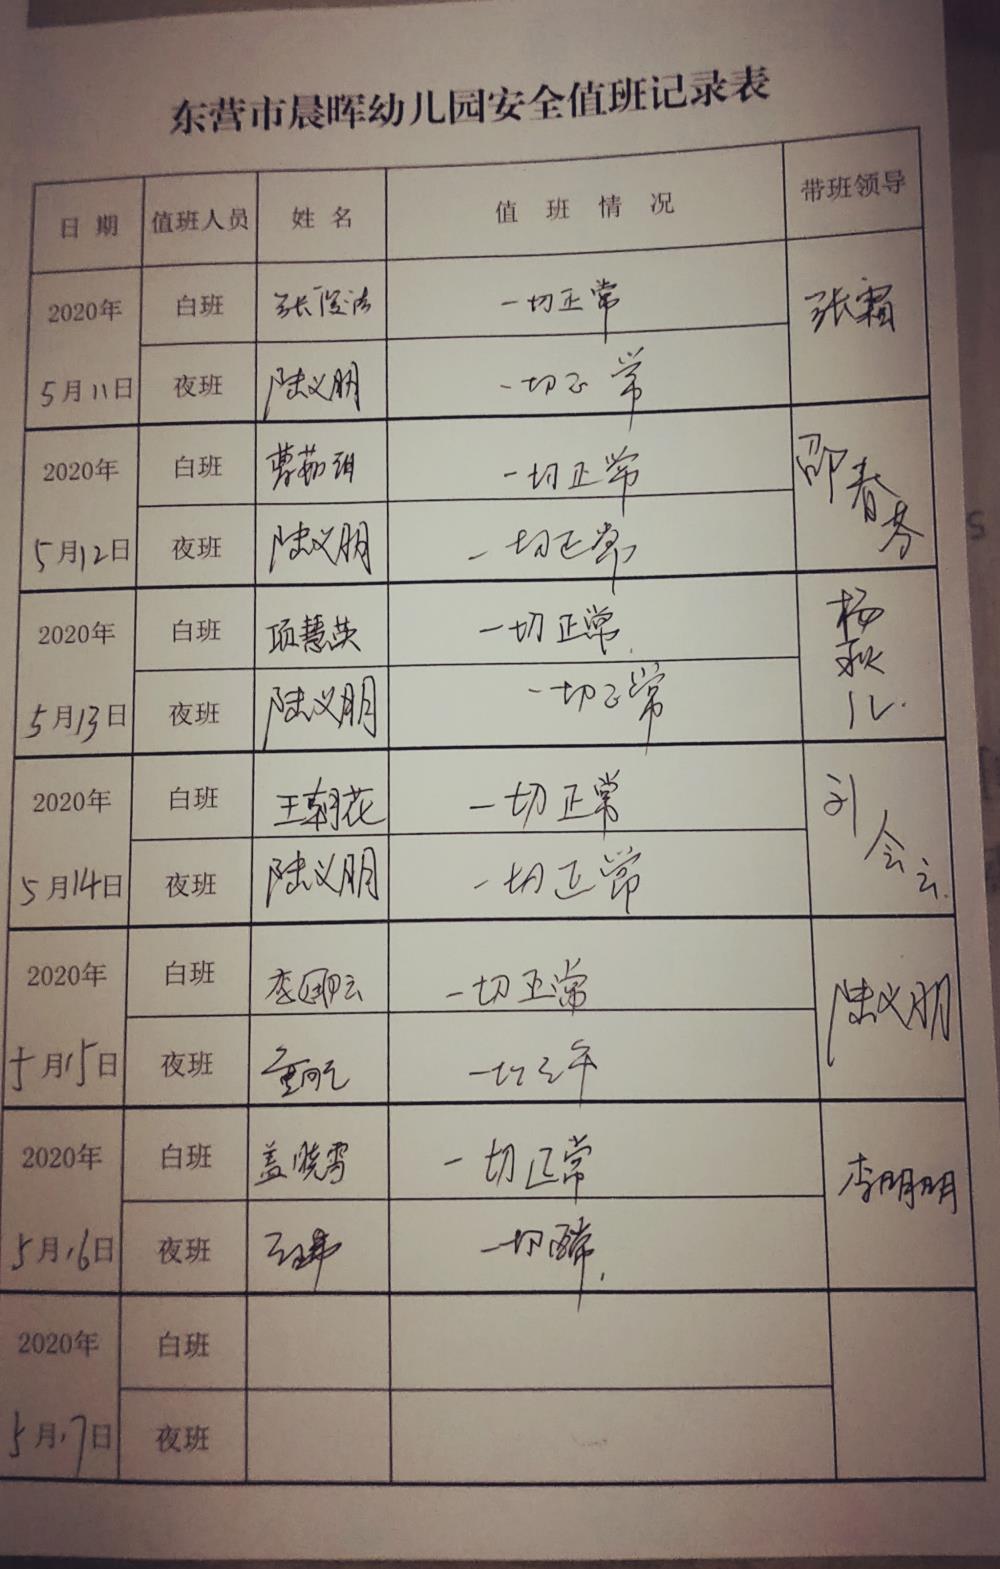 东营市晨晖幼儿园安全值班记录表
日期 值班人员 姓名 值班情况 带班领导
2020年 白班 张俊洁 一切正常 张霜
5月11日 夜班 陆义朋 一切正常
2020年 白班 曹茹 一切正常 邵春芬
5月12日 夜班 陆义朋 一切正常
2020年 白班 项慧英 一切正常 杨秋儿
5月13日 夜班 陆义朋 一切正常
2020年 白班 王朝花 一切正常 刘会云
5月14日 夜班 陆义朋 一切正常
2020年 白班 李 云 一切正常 陆义朋
5月15日 夜班 一切正常
2020年 白班 盖晓雪 一切正常 李朋朋
5月16日 夜班 一切正常
2020年 白班
5月17日 夜班